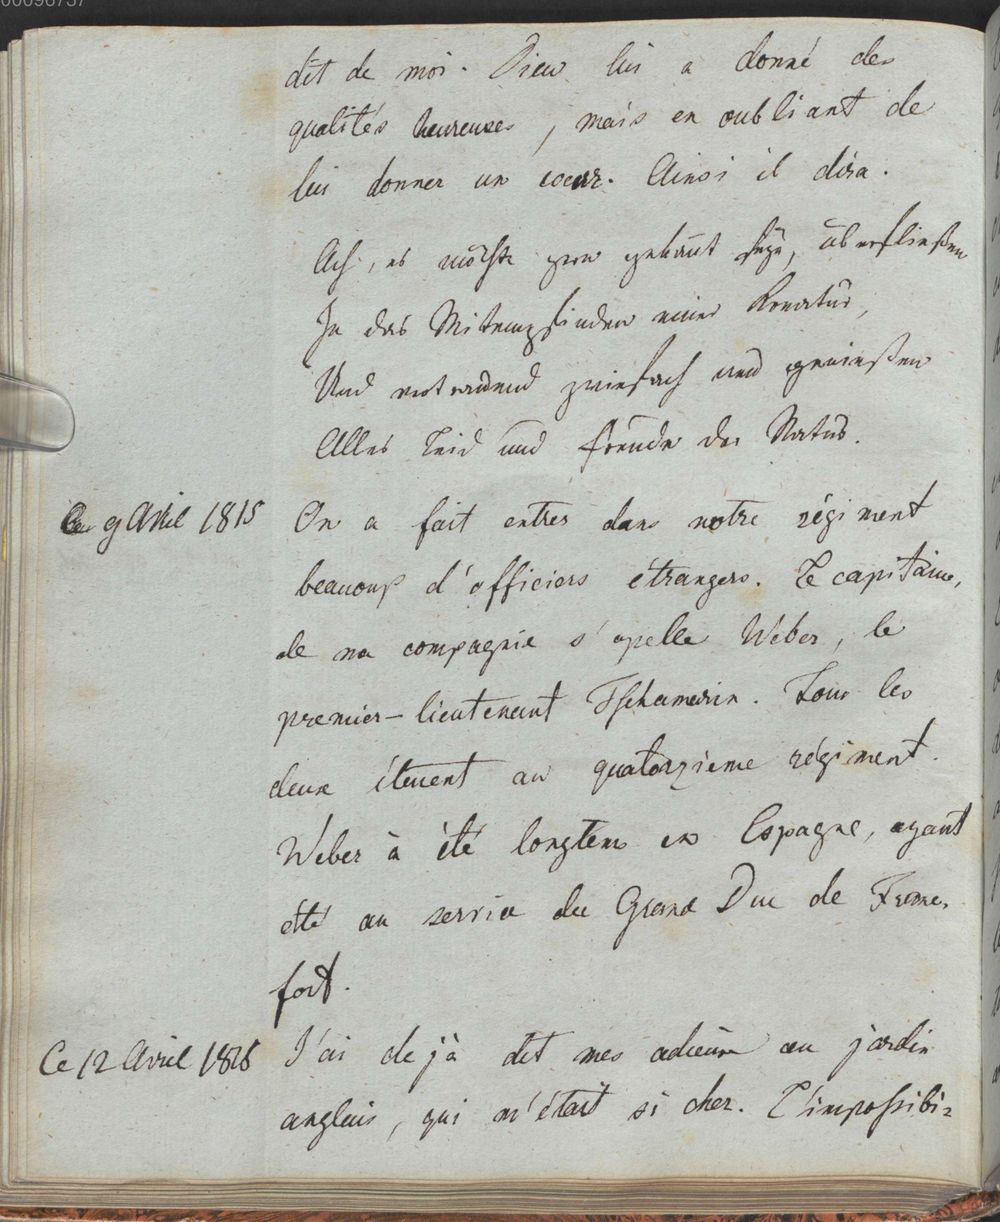 00096737
dit de moi. Dieu lui a donné des
qualités heureuses, mais en oubliant de
lui donner un coeur. Ainsi il dira.
Ach, es möchte gern gekannt seyn, überfließen
In das Mitempfinden einer Kreatur,
Und vertrauend zwiefach neu genießen
Alles Leid und Freude der Natur.
Ce 9 Avril 1815
On a fait entrer dans notre régiment
beaucoup d'officiers étrangers. Le capitaine,
de ma compagnie s'apelle Weber, le
premier-lieutenant Tschamerin. Tous les
deux étaient au quatorzieme régiment.
Weber à été longtems en Espagne, ayant
été au service du Grand Duc de Franc,
fort.
Ce 12 Avril 1815
J'ai de jà dit mes adieux au jardin
anglais, qui m'était si cher. L'impossibi-